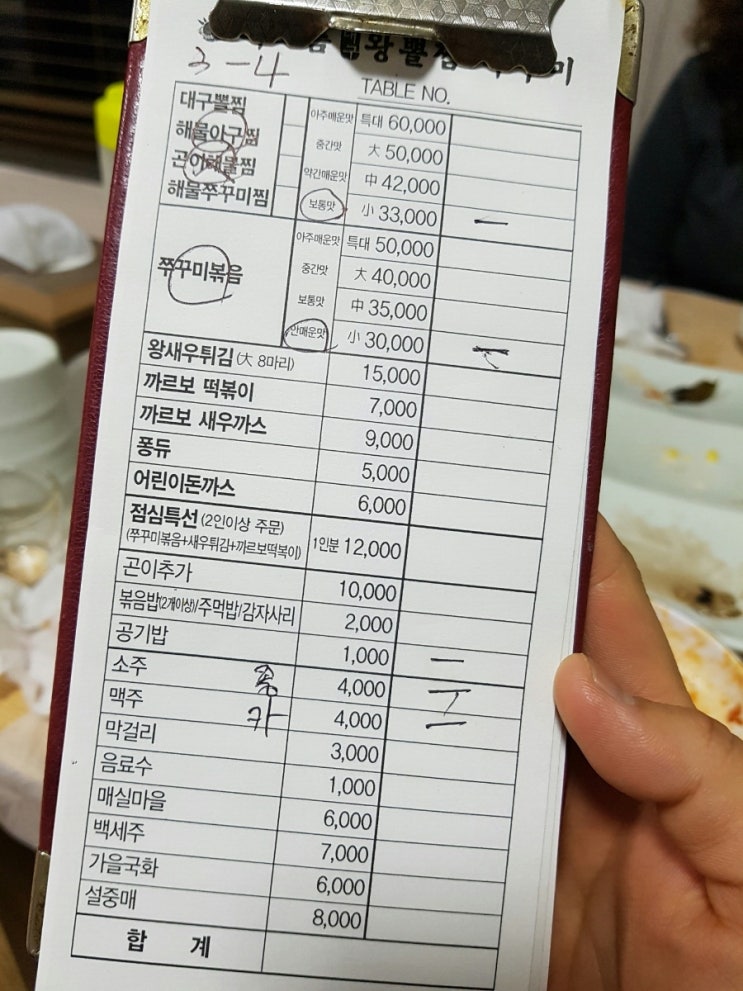 3-4
TABLE NO.
대구뽈찜
해물아구찜
곤이해물찜
해물쭈꾸미찜
아주매운맛 특대 60,000
중간맛 大 50,000
약간매운맛 中 42,000
보통맛 小 33,000 一
쭈꾸미볶음
아주매운맛 특대 50,000
중간맛 大 40,000
보통맛 中 35,000
안매운맛 小 30,000
왕새우튀김 (大 8마리) 15,000
까르보 떡볶이 7,000
까르보 새우까스 9,000
퐁듀 5,000
어린이돈까스 6,000
점심특선 (2인이상 주문)
(쭈꾸미볶음+새우튀김+까르보떡볶이) 1인분 12,000
곤이추가 10,000
볶음밥(2개이상)/주먹밥/감자사리 2,000
공기밥 1,000 一
소주 4,000
맥주 카 4,000
막걸리 3,000
음료수 1,000
매실마을 6,000
백세주 7,000
가을국화 6,000
설중매 8,000
합 계